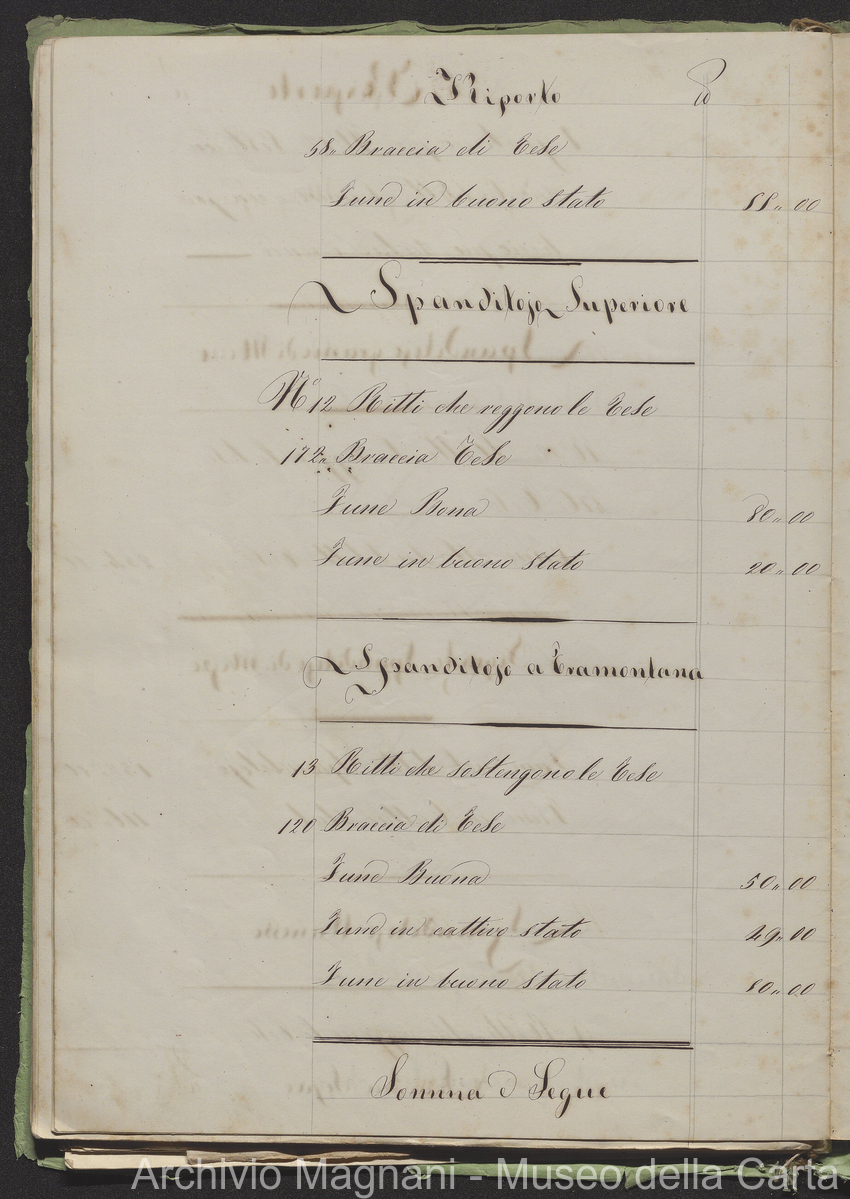 Riporto
58,, Braccia di Tese
Fune in buono Stato 55,,00
Spanditojo Superiore
N.º 12 Ritti che reggono le Tese
172,, Braccia Tese
Fune Bona 80,,00
Fune in buono Stato 20,,00
Spanditojo a Tramontana
13 Ritti che sostengono le Tese
120 Braccia di Tese
Fune Buona 50,,00
Fune in cattivo stato 49,,00
Fune in buono Stato 80,,00
Somma e Segue
Archivio Magnani - Museo della Carta